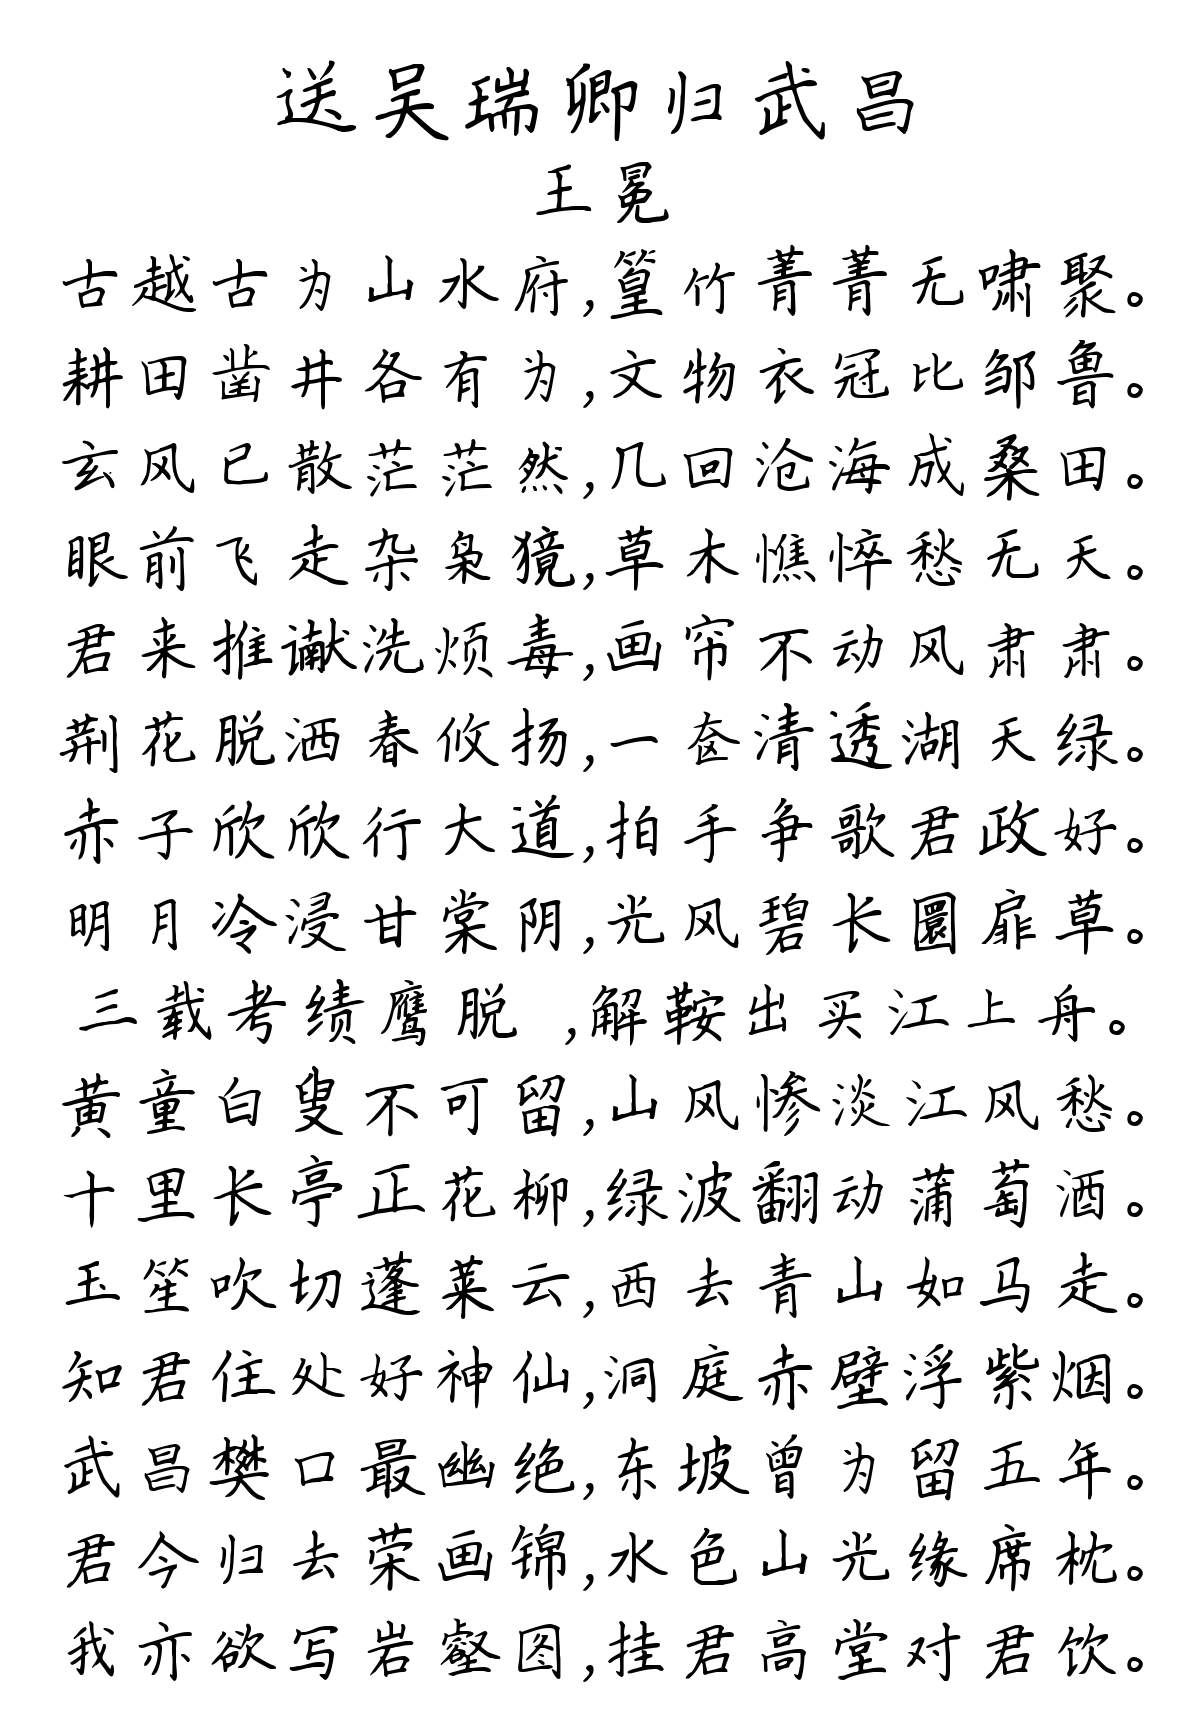 送吴瑞卿归武昌
王冕
古越古为山水府,篁竹菁菁无啸聚。
耕田凿井各有为,文物衣冠比邹鲁。
玄风已散茫茫然,几回沧海成桑田。
眼前飞走杂枭獍,草木憔悴愁无天。
君来推谳洗烦毒,画帘不动风肃肃。
荆花脱洒春攸扬,一奁清透湖天绿。
赤子欣欣行大道,拍手争歌君政好。
明月冷浸甘棠阴,光风碧长圜扉草。
三载考绩鹰脱 ,解鞍出买江上舟。
黄童白叟不可留,山风惨淡江风愁。
十里长亭正花柳,绿波翻动蒲萄酒。
玉笙吹切蓬莱云,西去青山如马走。
知君住处好神仙,洞庭赤壁浮紫烟。
武昌樊口最幽绝,东坡曾为留五年。
君今归去荣画锦,水色山光缘席枕。
我亦欲写岩壑图,挂君高堂对君饮。